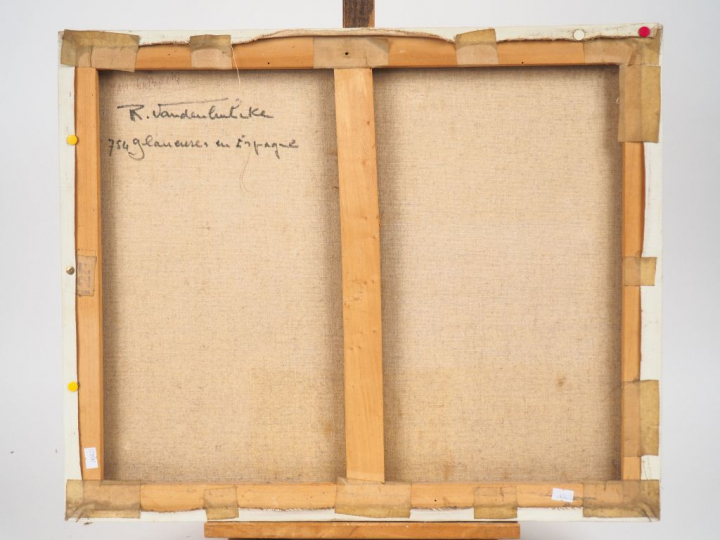 R. Vandenbulcke
754 glaneuses en Espagne